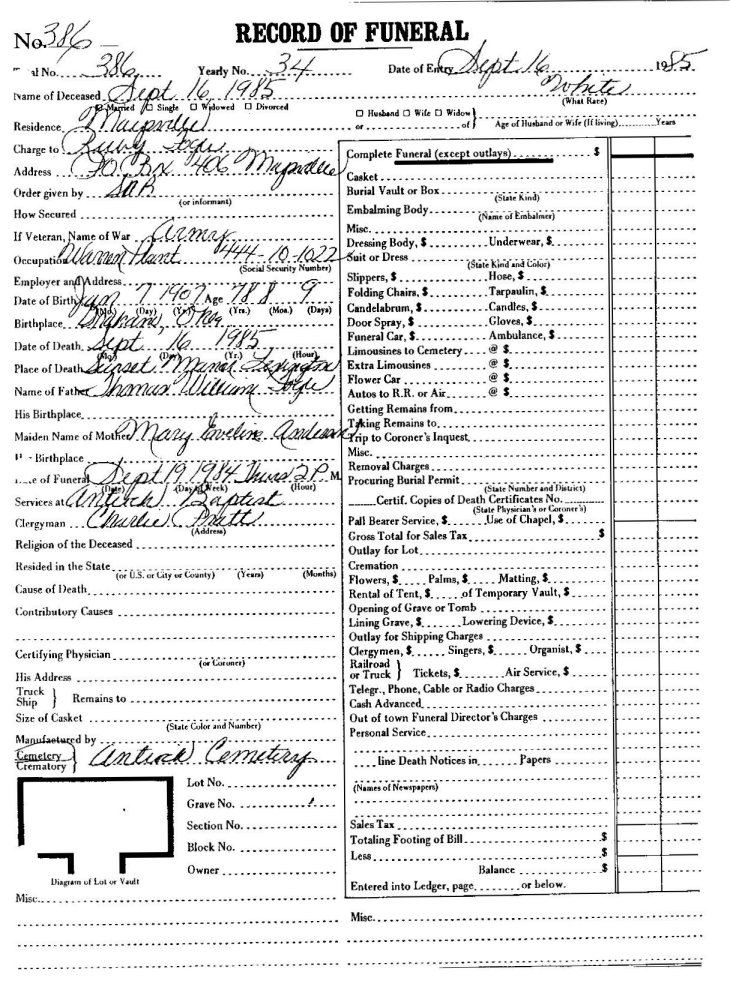 RECORD OF FUNERAL
No. 386
al No. 386 Yearly No. 34 Date of Entry Sept 16 1985
Name of Deceased Sept 16, 1985 White
(What Race)
Married Single Widowed Divorced Husband Wife Widow
or of Age of Husband or Wife (If living) Years
Residence Maysville
Charge to Ruby
Address PO Box 406 Maysville
Order given by
(or informant)
How Secured
If Veteran, Name of War Army
Occupation Warren Plant 444-10-1022
(Social Security Number)
Employer and Address
Date of Birth Jan 7 1907 Age 78 8 9
(Mo.) (Day) (Yr.) (Yrs.) (Mos.) (Days)
Birthplace Okla
Date of Death Sept 16 1985
(Mo.) (Day) (Yr.) (Hour)
Place of Death Sunset Manor Lexington
Name of Father Thomas William
His Birthplace
Maiden Name of Mother Mary Eveline Anderson
Birthplace
e of Funeral Sept 19 1984 Thurs 2 P. M.
(Date) (Day of Week) (Hour)
Services at Antioch Baptist
Clergyman Charlie Pratt
(Address)
Religion of the Deceased
Resided in the State
(or U.S. or City or County) (Years) (Months)
Cause of Death
Contributory Causes
Certifying Physician
(or Coroner)
His Address
Truck
Ship } Remains to
Size of Casket
(State Color and Number)
Manufactured by
Cemetery
Crematory } Antioch Cemetery
Lot No.
Grave No.
Section No.
Block No.
Owner
Diagram of Lot or Vault
Misc.
Complete Funeral (except outlays) $
Casket
Burial Vault or Box
(State Kind)
Embalming Body
(Name of Embalmer)
Misc.
Dressing Body, $ Underwear, $
Suit or Dress
(State Kind and Color)
Slippers, $ Hose, $
Folding Chairs, $ Tarpaulin, $
Candelabrum, $ Candles, $
Door Spray, $ Gloves, $
Funeral Car, $ Ambulance, $
Limousines to Cemetery @ $
Extra Limousines @ $
Flower Car @ $
Autos to R.R. or Air @ $
Getting Remains from
Taking Remains to
Trip to Coroner's Inquest
Misc.
Removal Charges
Procuring Burial Permit
(State Number and District)
Certif. Copies of Death Certificates No.
(State Physician's or Coroner's)
Pall Bearer Service, $ Use of Chapel, $
Gross Total for Sales Tax $
Outlay for Lot
Cremation
Flowers, $ Palms, $ Matting, $
Rental of Tent, $ of Temporary Vault, $
Opening of Grave or Tomb
Lining Grave, $ Lowering Device, $
Outlay for Shipping Charges
Clergymen, $ Singers, $ Organist, $
Railroad
or Truck } Tickets, $ Air Service, $
Telegr., Phone, Cable or Radio Charges
Cash Advanced
Out of town Funeral Director's Charges
Personal Service
line Death Notices in Papers
(Names of Newspapers)
Sales Tax
Totaling Footing of Bill $
Less $
Balance $
Entered into Ledger, page or below.
Misc.